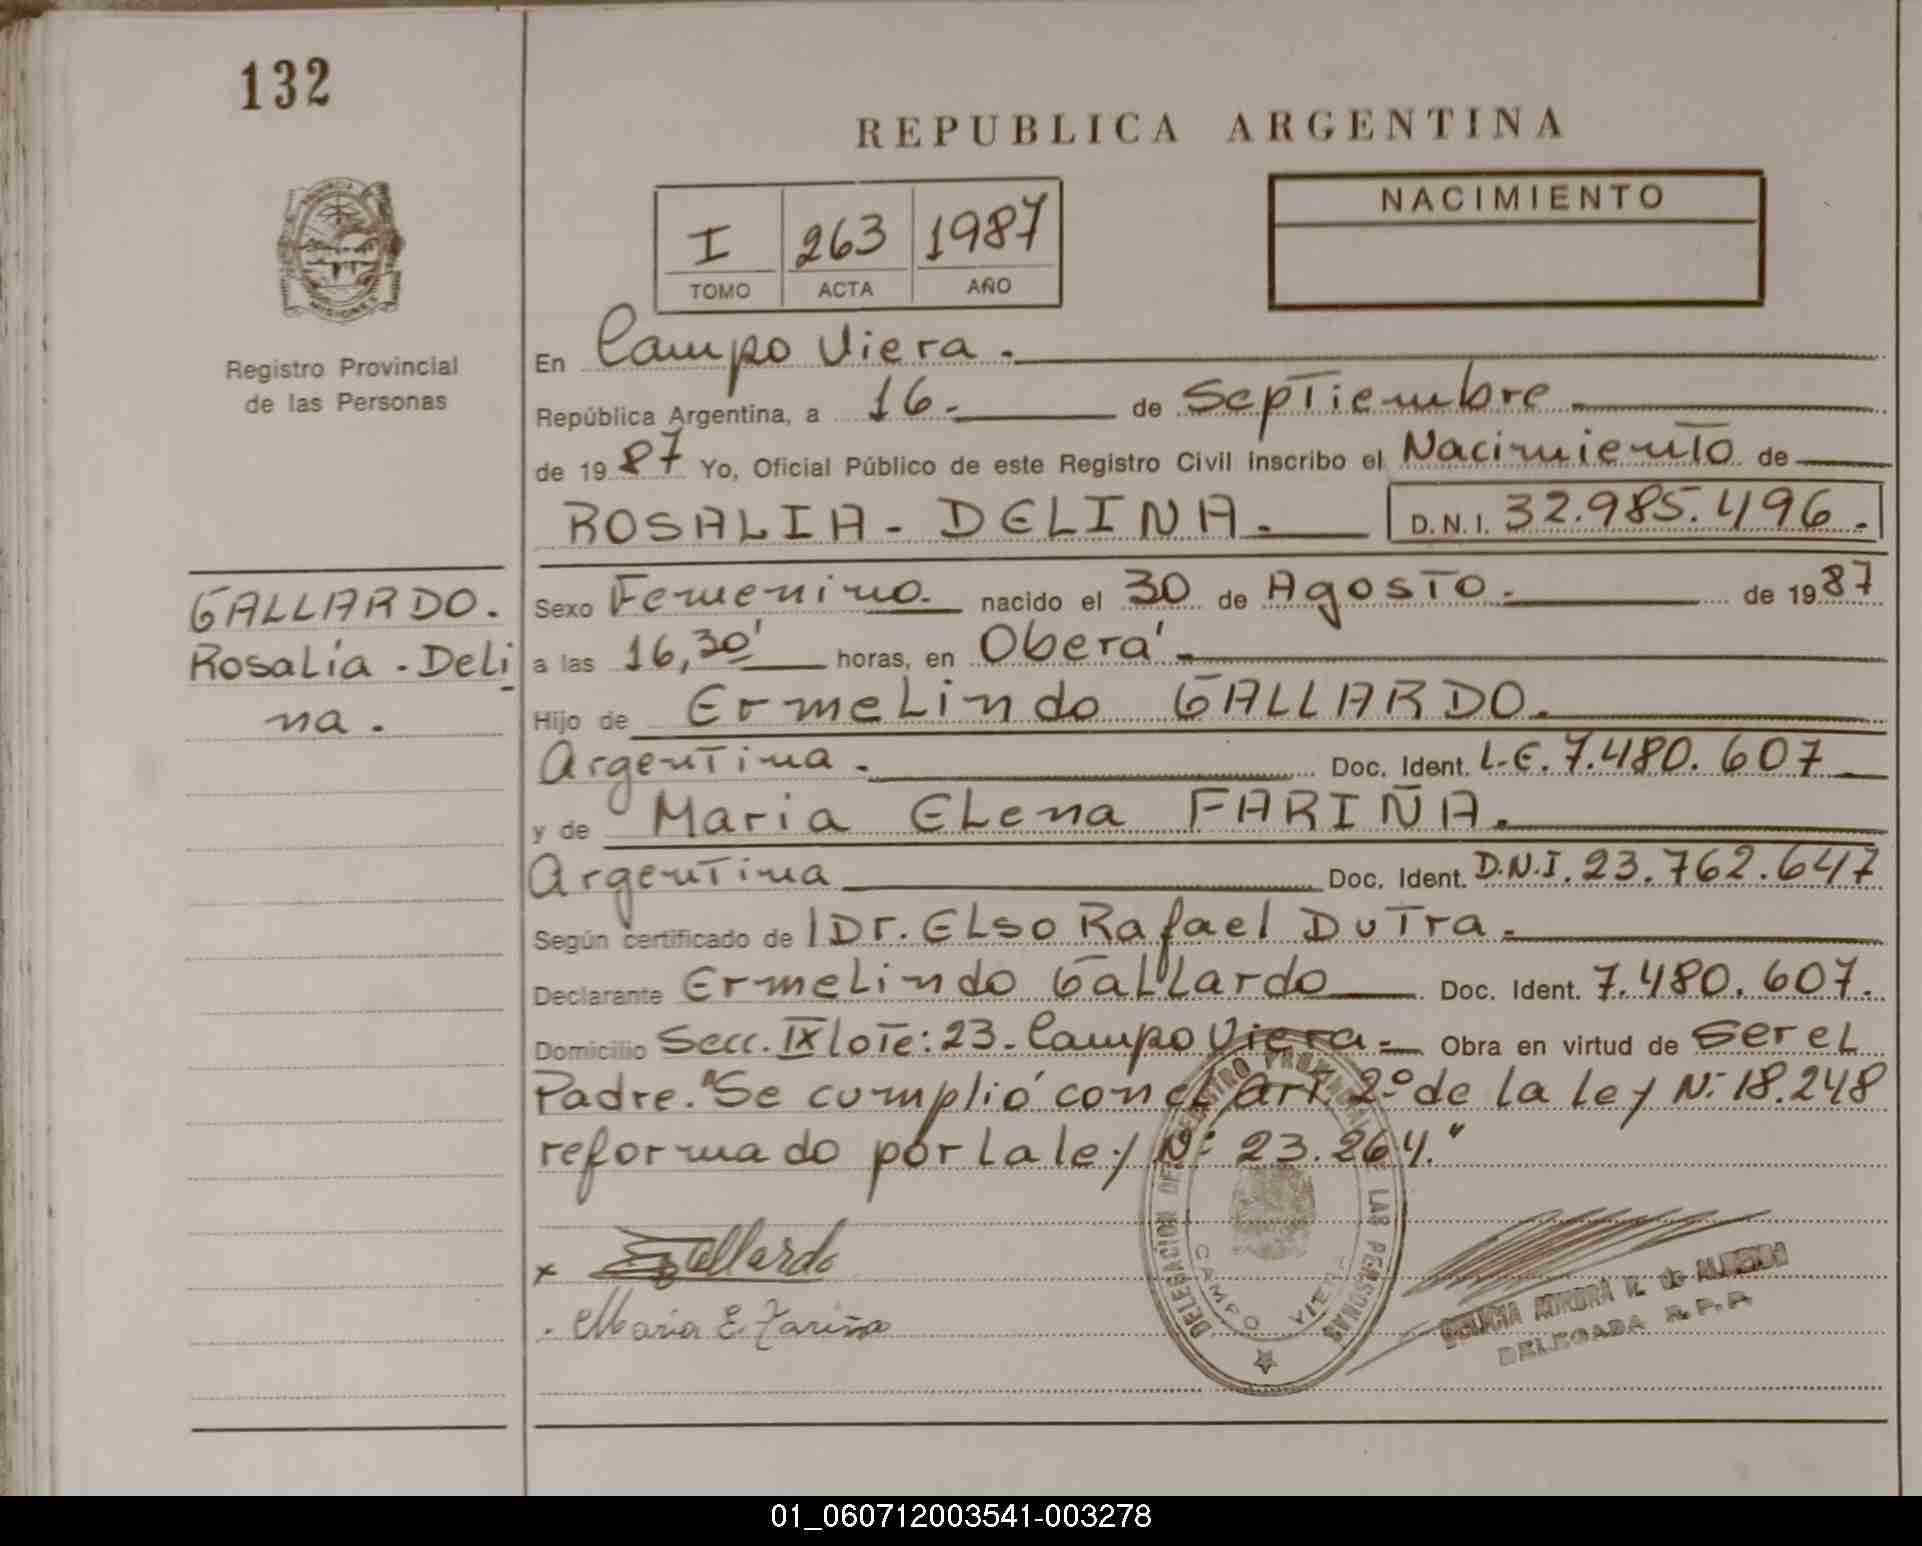 132
REPUBLICA ARGENTINA
PROVINCIA
MISIONES
Registro Provincial
de las Personas
I 263 1987
TOMO ACTA AÑO
NACIMIENTO
En Campo Viera.
República Argentina, a 16 de Septiembre
de 1987 Yo, Oficial Público de este Registro Civil inscribo el Nacimiento de
ROSALIA - DELINA. D.N.I. 32.985.496.
GALLARDO.
Rosalía - Deli
na.
Sexo Femenino. nacido el 30 de Agosto. de 1987
a las 16,30' horas, en Oberá
Hijo de Ermelindo GALLARDO.
Argentina. Doc. Ident. L.E. 7.480.607
y de Maria Elena FARIÑA.
Argentina Doc. Ident. D.N.I. 23.762.647
Según certificado de Dr. Elso Rafael Dutra.
Declarante Ermelindo Gallardo Doc. Ident. 7.480.607.
Domicilio Secc. IX lote: 23. Campo Viera Obra en virtud de ser el
Padre. "Se cumplió con el art. 2º de la ley Nº 18.248
reformado por la ley Nº 23.264."
x Gallardo
Maria E. Fariña
DELEGACION DEL REGISTRO PROVINCIAL DE LAS PERSONAS
CAMPO VIERA
AURORA de ALMEIDA
DELEGADA R.P.P.
01_060712003541-003278